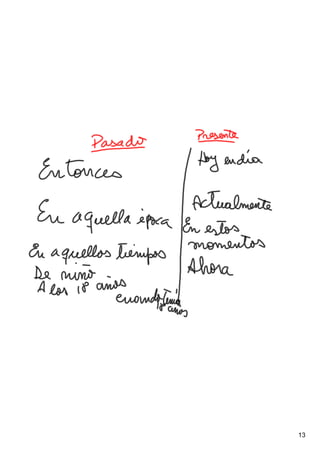 Pasado
Entonces
En aquella época
En aquellos tiempos
De niño
A los 18 años
cuando tenía
18 años
Presente
Hoy en día
Actualmente
En estos
momentos
Ahora
13